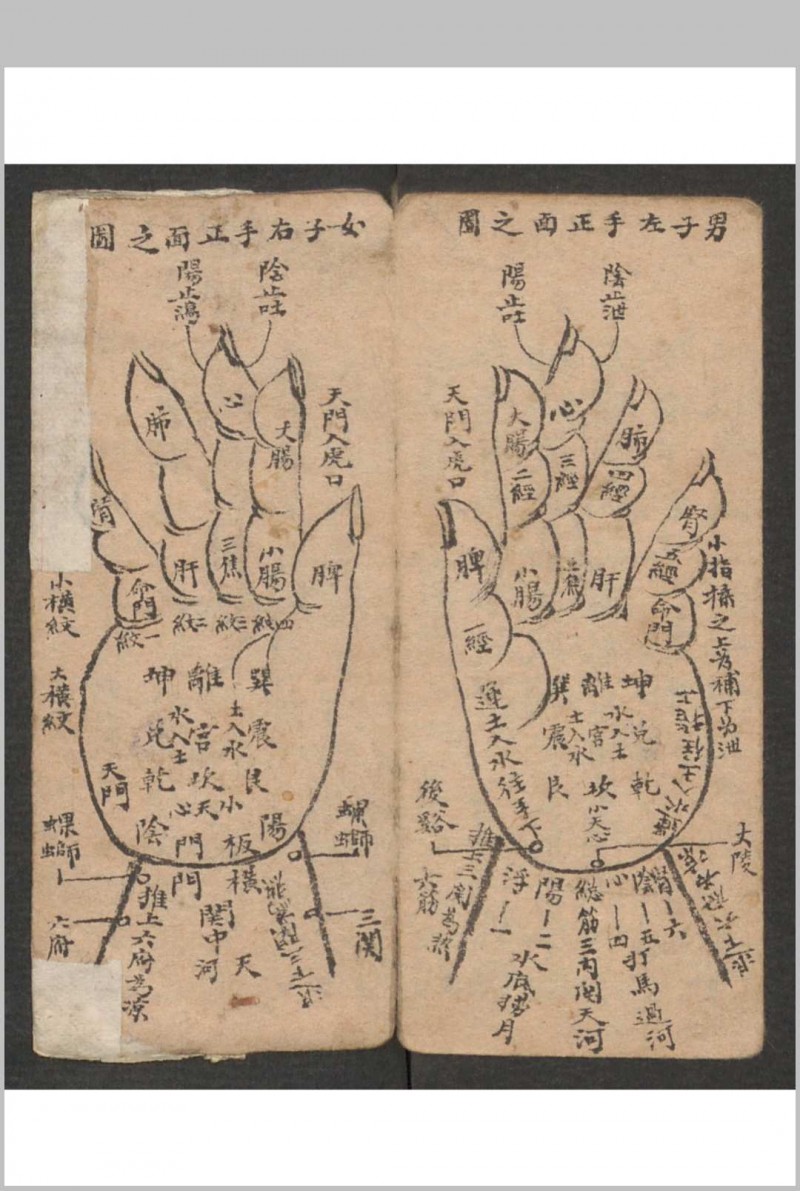 男子左手正面之圖
陰止泄
陽止吐
心
大腸
肺
腎
天門入虎口
二經
三經
四經
五經
脾
小腸
三焦
肝
命門
一經
小指搖之上為補下為泄
運土入水往手下
巽
離
坤
震
宮
兌
土入水
水入土
艮
坎
乾
小天心
後谿
大陵
六筋
推上三關為熱
浮一一
陽一二
總筋三內関天河
心一四
陰一五打馬過河
腎一六
水底撈月
女子右手正面之圖
陰止吐
陽止瀉
心
肺
大腸
天門入虎口
肝
三焦
小腸
脾
命門
小橫紋
紋一
紋二
紋三
紋四
大橫紋
坤
離
巽
水入土
土入水
兌
宮
震
乾
坎
艮
天門
小天心
陰
陽
門
門
板
橫
関中河
天
螺螄
螺螄
六府
三関
推上六府為涼